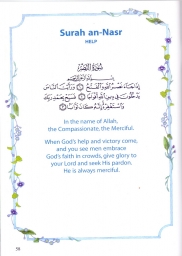 Surah an-Nasr
HELP
سُورَةُ النَّصْرِ
بِسْمِ اللَّهِ الرَّحْمَٰنِ الرَّحِيمِ
إِذَا جَاءَ نَصْرُ اللَّهِ وَالْفَتْحُ ۝ وَرَأَيْتَ النَّاسَ
يَدْخُلُونَ فِي دِينِ اللَّهِ أَفْوَاجًا ۝ فَسَبِّحْ بِحَمْدِ رَبِّكَ
وَاسْتَغْفِرْهُ إِنَّهُ كَانَ تَوَّابًا ۝
In the name of Allah,
the Compassionate, the Merciful.
When God's help and victory come,
and you see men embrace
God's faith in crowds, give glory to
your Lord and seek His pardon.
He is always merciful.